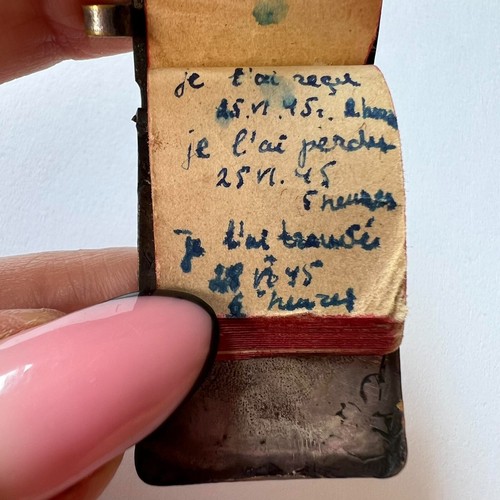 je t'ai reçu
25.VI.45г. 2 heures
je l'ai perdu
25 VI. 45
5 heures
je l'ai trouvée
28 VI 45
6 heures